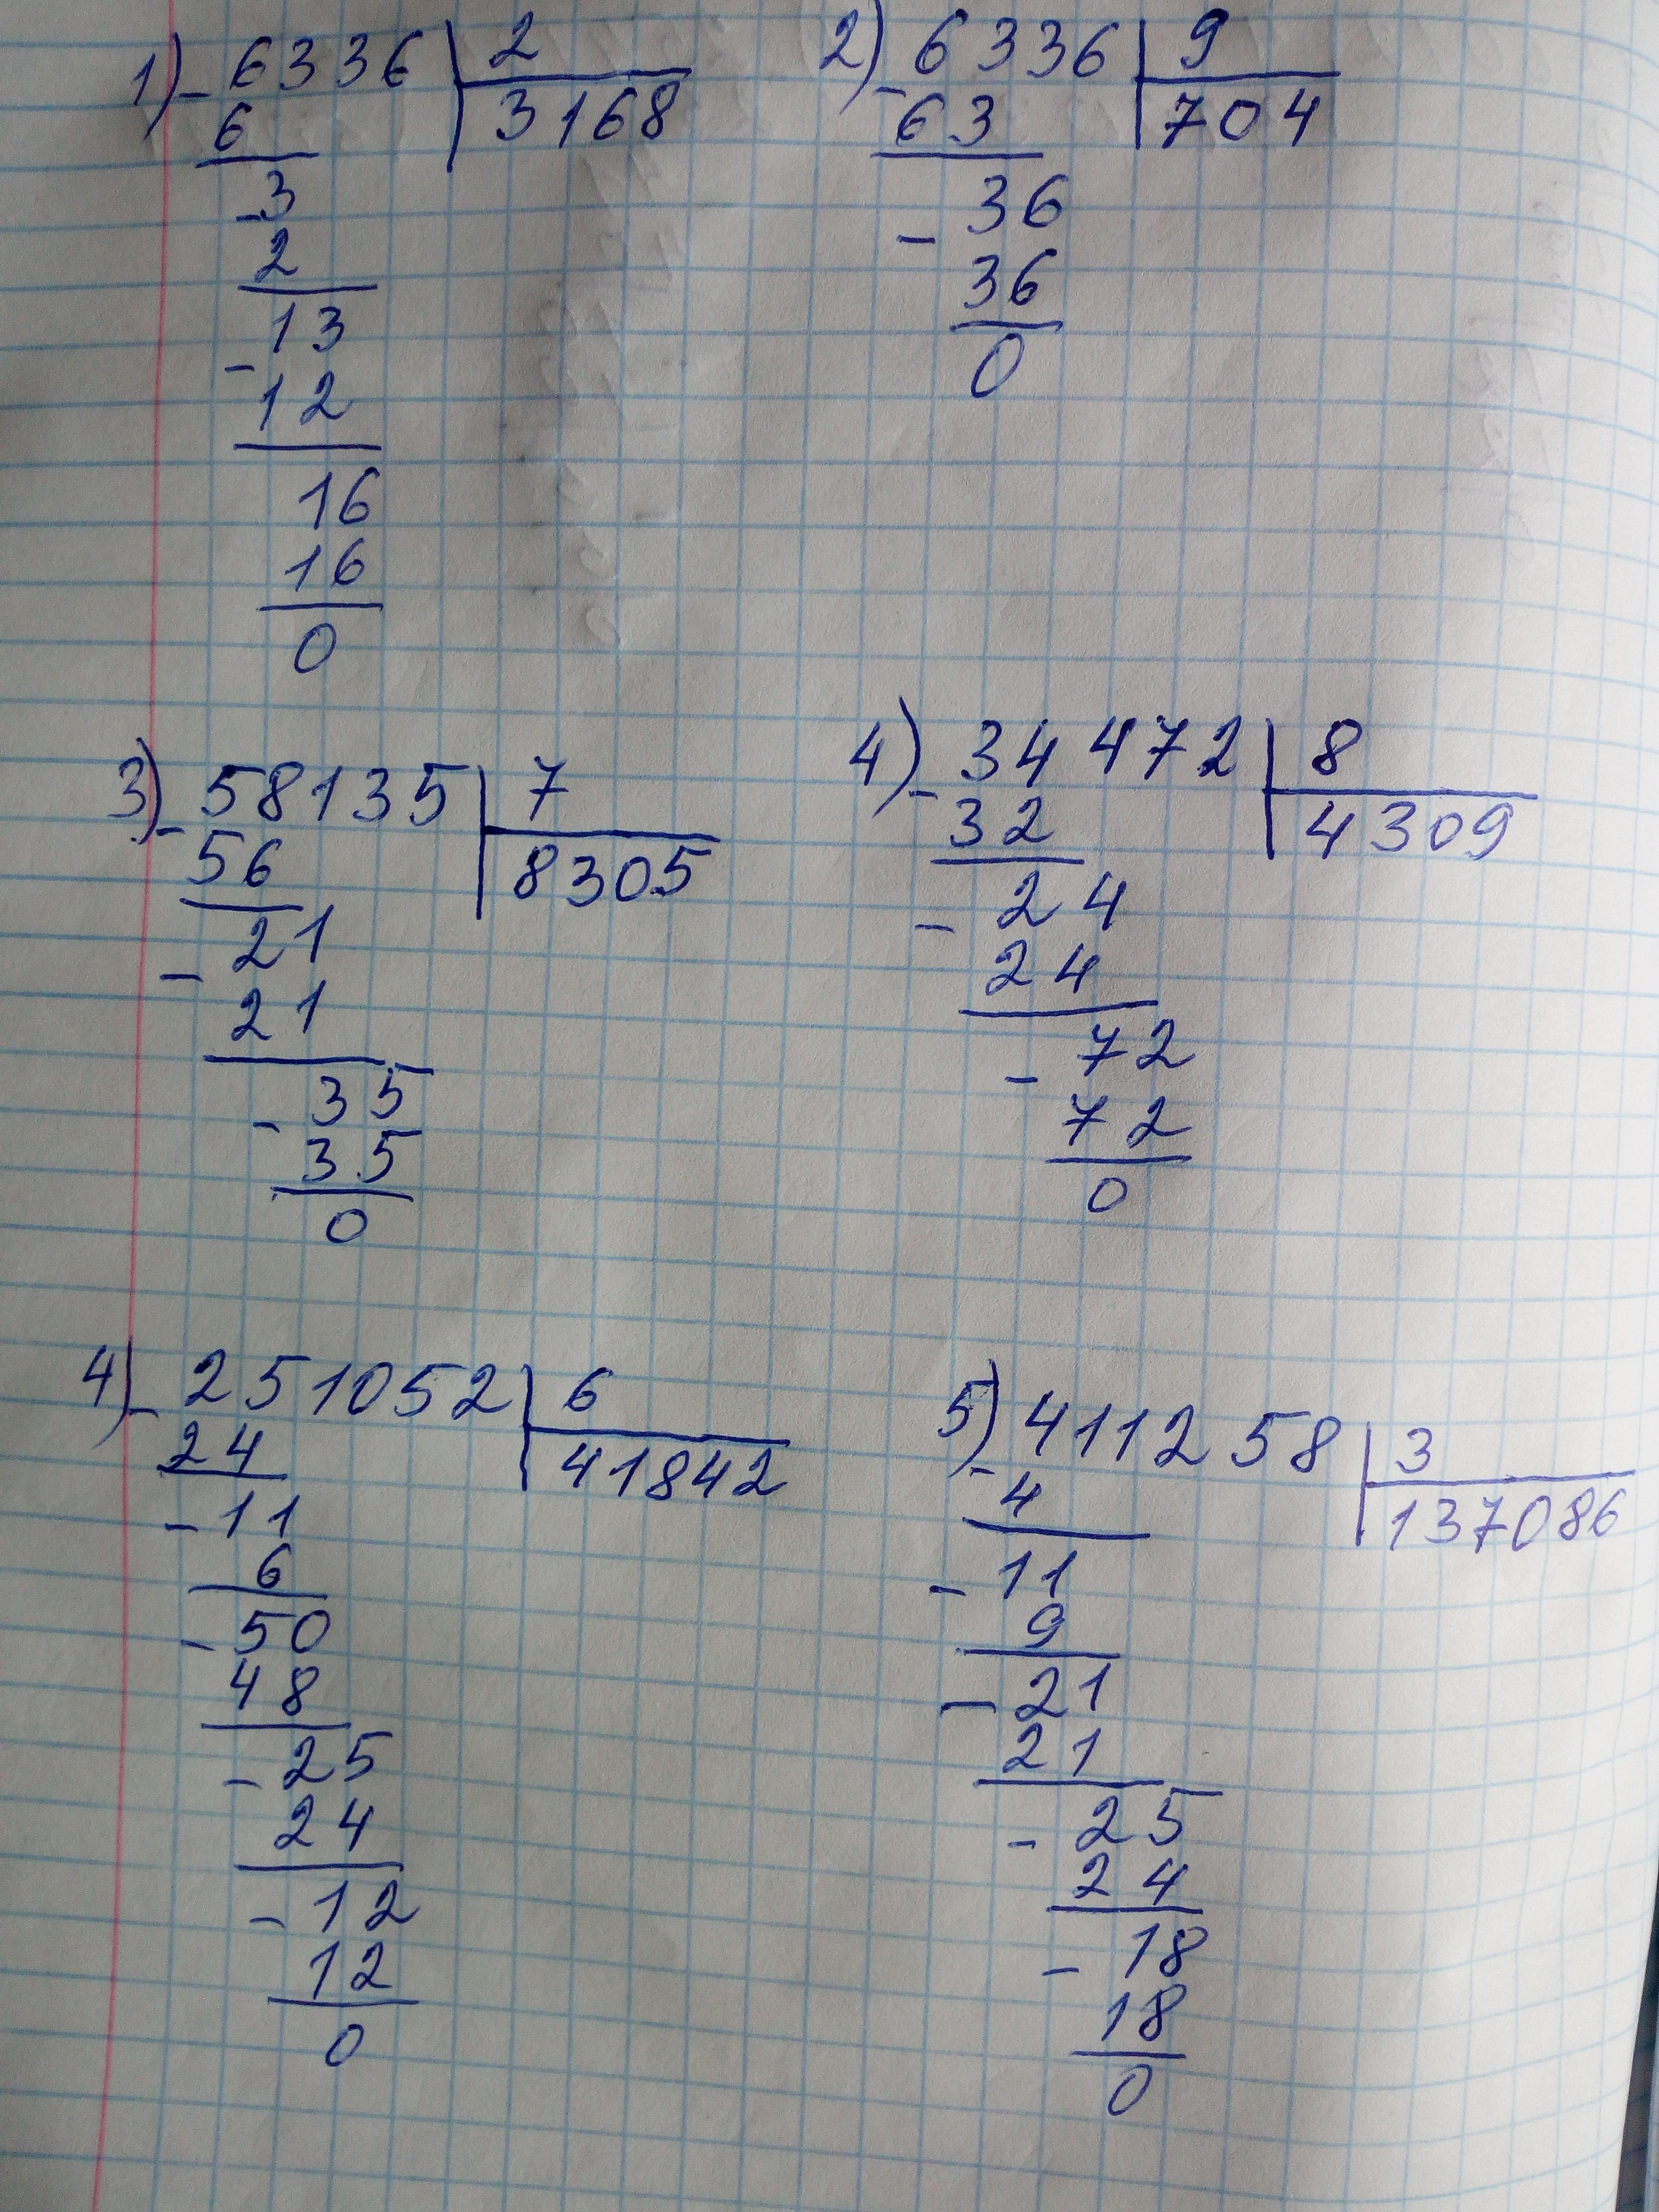 1) - 6336 | 2
6 | 3168
- 3
2
- 13
12
16
16
0
2) - 6336 | 9
63 | 704
- 36
36
0
3) - 58135 | 7
56 | 8305
- 21
21
- 35
35
0
4) - 34472 | 8
32 | 4309
- 24
24
- 72
72
0
4) - 251052 | 6
24 | 41842
- 11
6
- 50
48
- 25
24
- 12
12
0
5) - 411258 | 3
4 | 137086
- 11
9
- 21
21
- 25
24
- 18
18
0